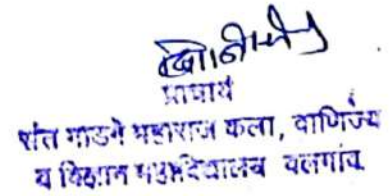 प्राचार्य
संत गाडगे महाराज कला, वाणिज्य
व विज्ञान महाविद्यालय वलगांव